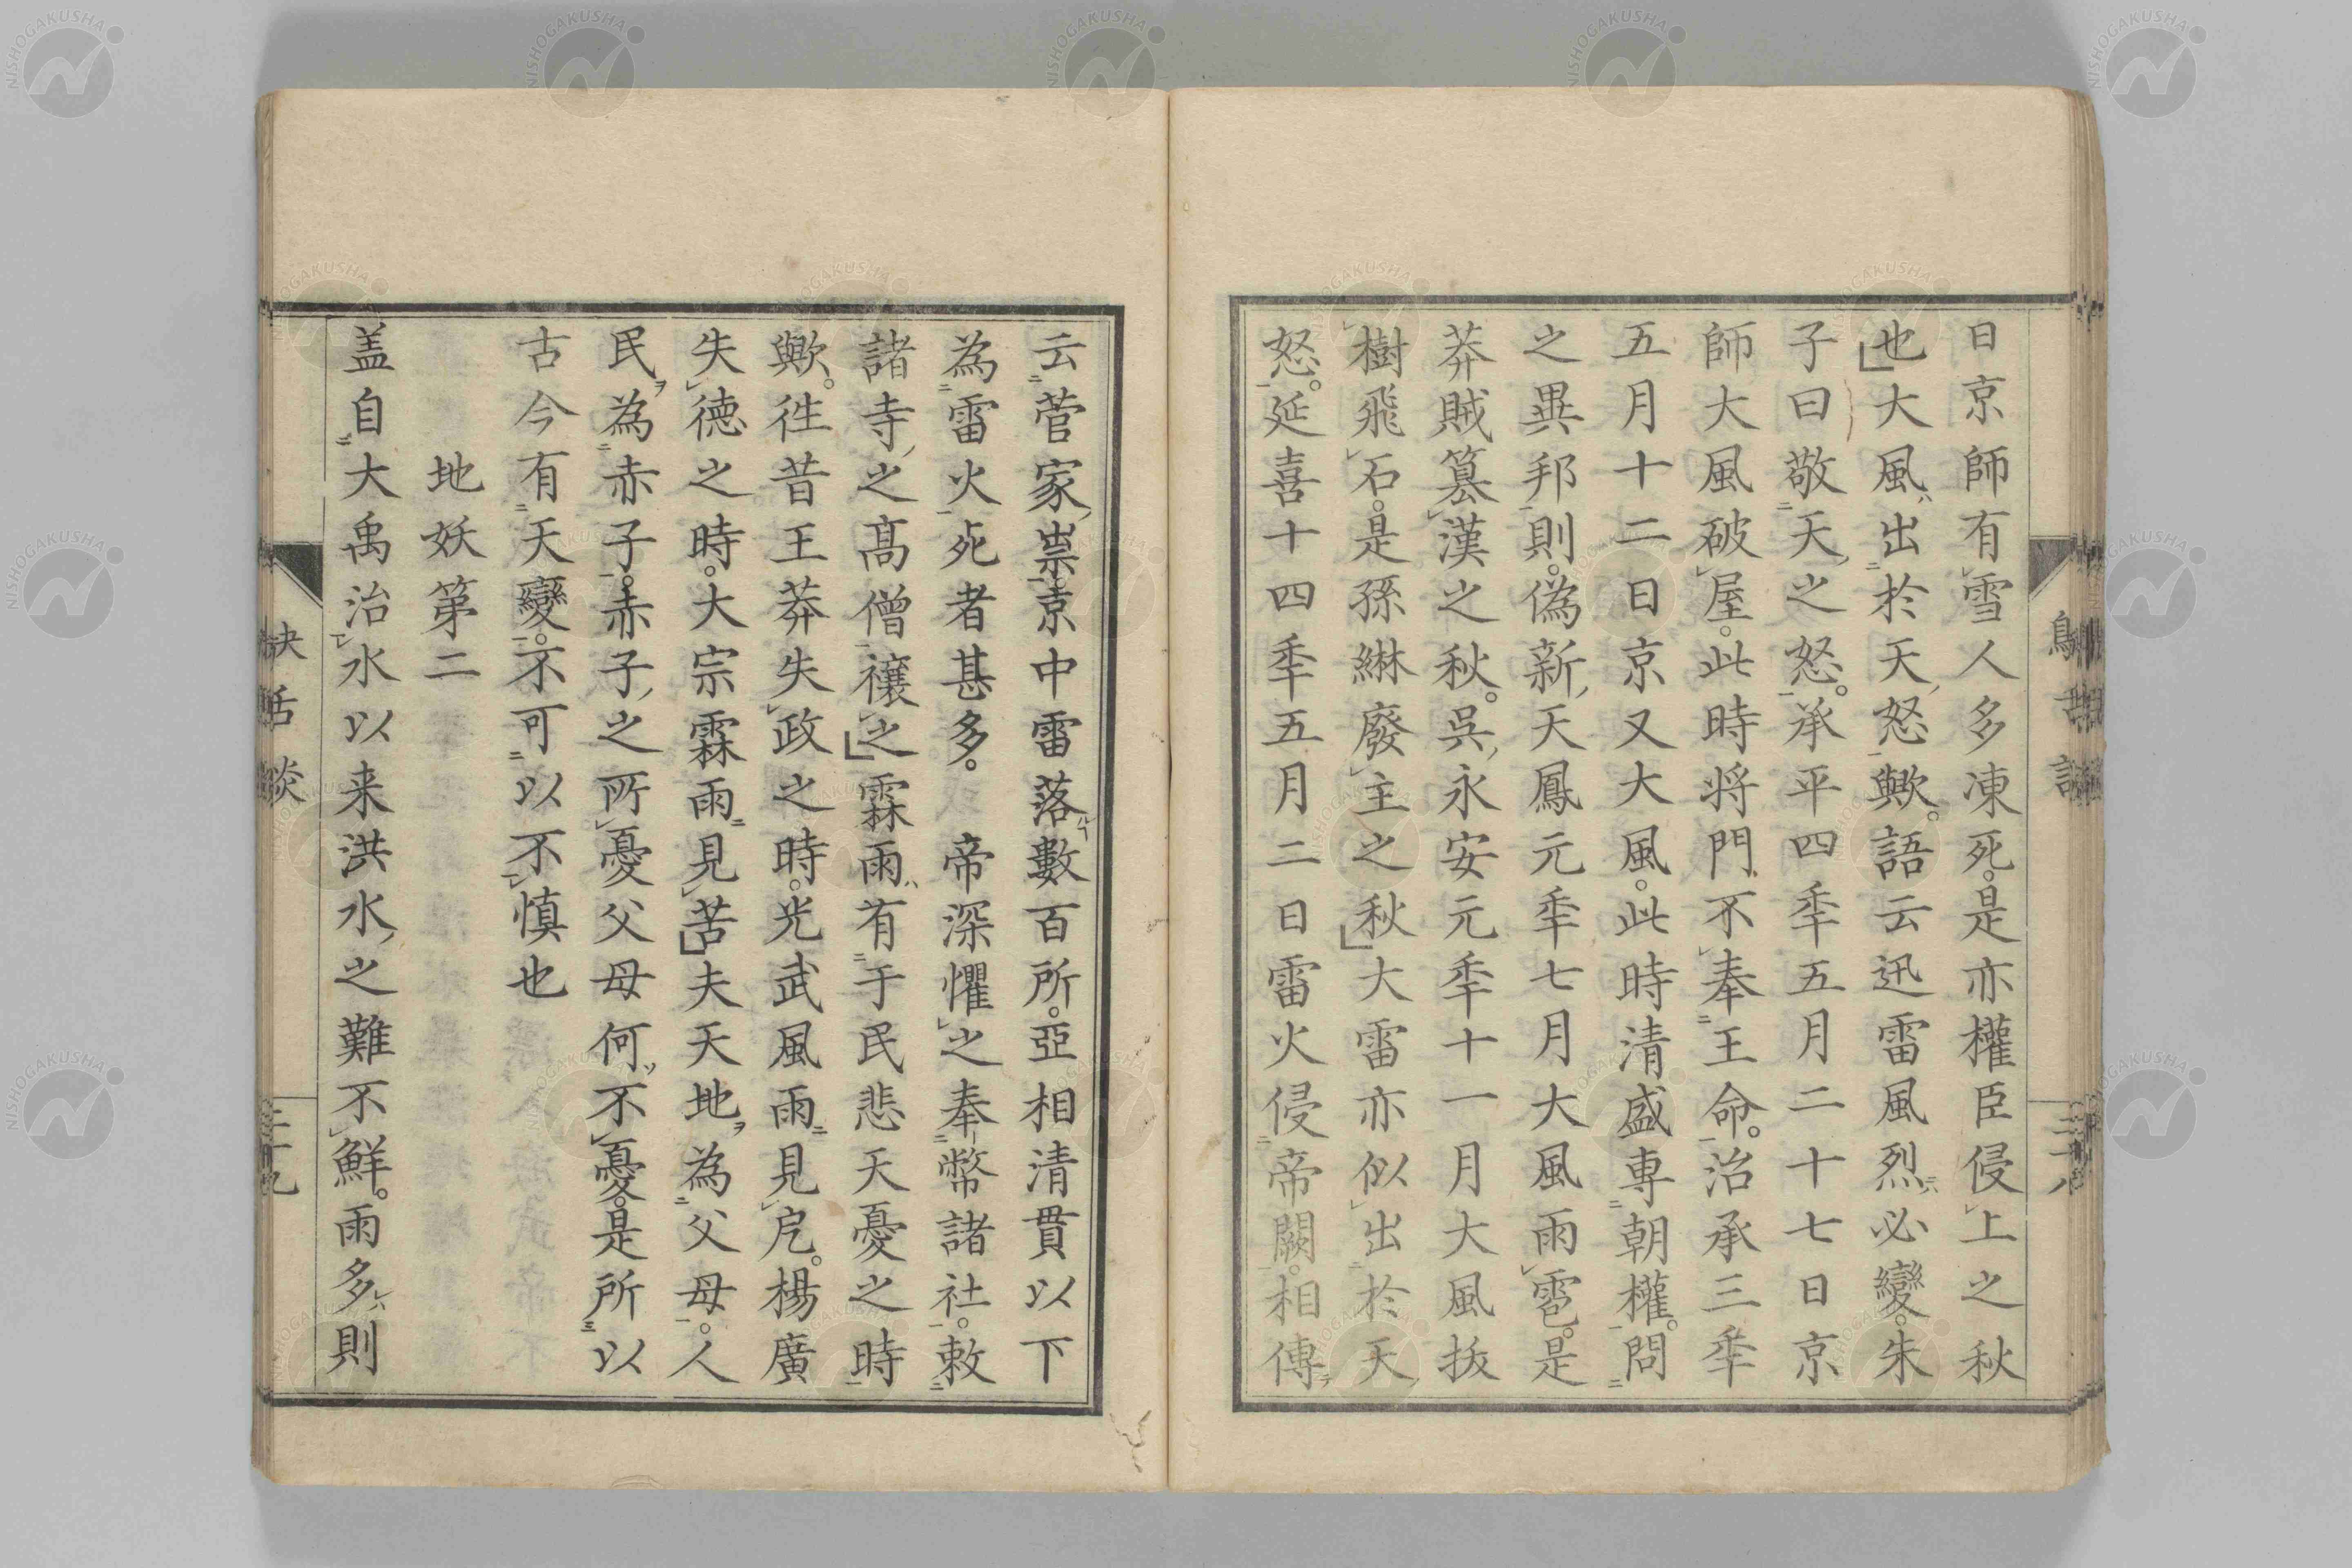 日京師有雪人多凍死。是亦權臣侵上之秋
也大風出於天怒歟。語云迅雷風烈必變。朱
子曰敬天之怒。承平四秊五月二十七日京
師大風破屋。此時将門不奉王命。治承三秊
五月十二日京又大風。此時清盛專朝權。問
之異邦則。偽新天鳳元秊七月大風雨雹。是
莽賊篡漢之秋。吳永安元秊十一月大風拔
樹飛石。是孫綝廢主之秋大雷亦似出於天
怒。延喜十四秊五月二日雷火侵帝闕。相傳
云菅家祟。京中雷落數百所。亞相清貫以下
為雷火死者甚多。帝深懼之奉幣諸社。敕
諸寺之高僧禳之霖雨有于民悲天憂之時
歟。徃昔王莽失政之時。光武風雨見戹。楊廣
失德之時。大宗霖雨見苦夫天地為父母。人
民為赤子。赤子之所憂父母何不憂。是所以
古今有天變。不可以不慎也
地妖第二
盖自大禹治水以来洪水之難不鮮。雨多則
NISHOGAKUSHA